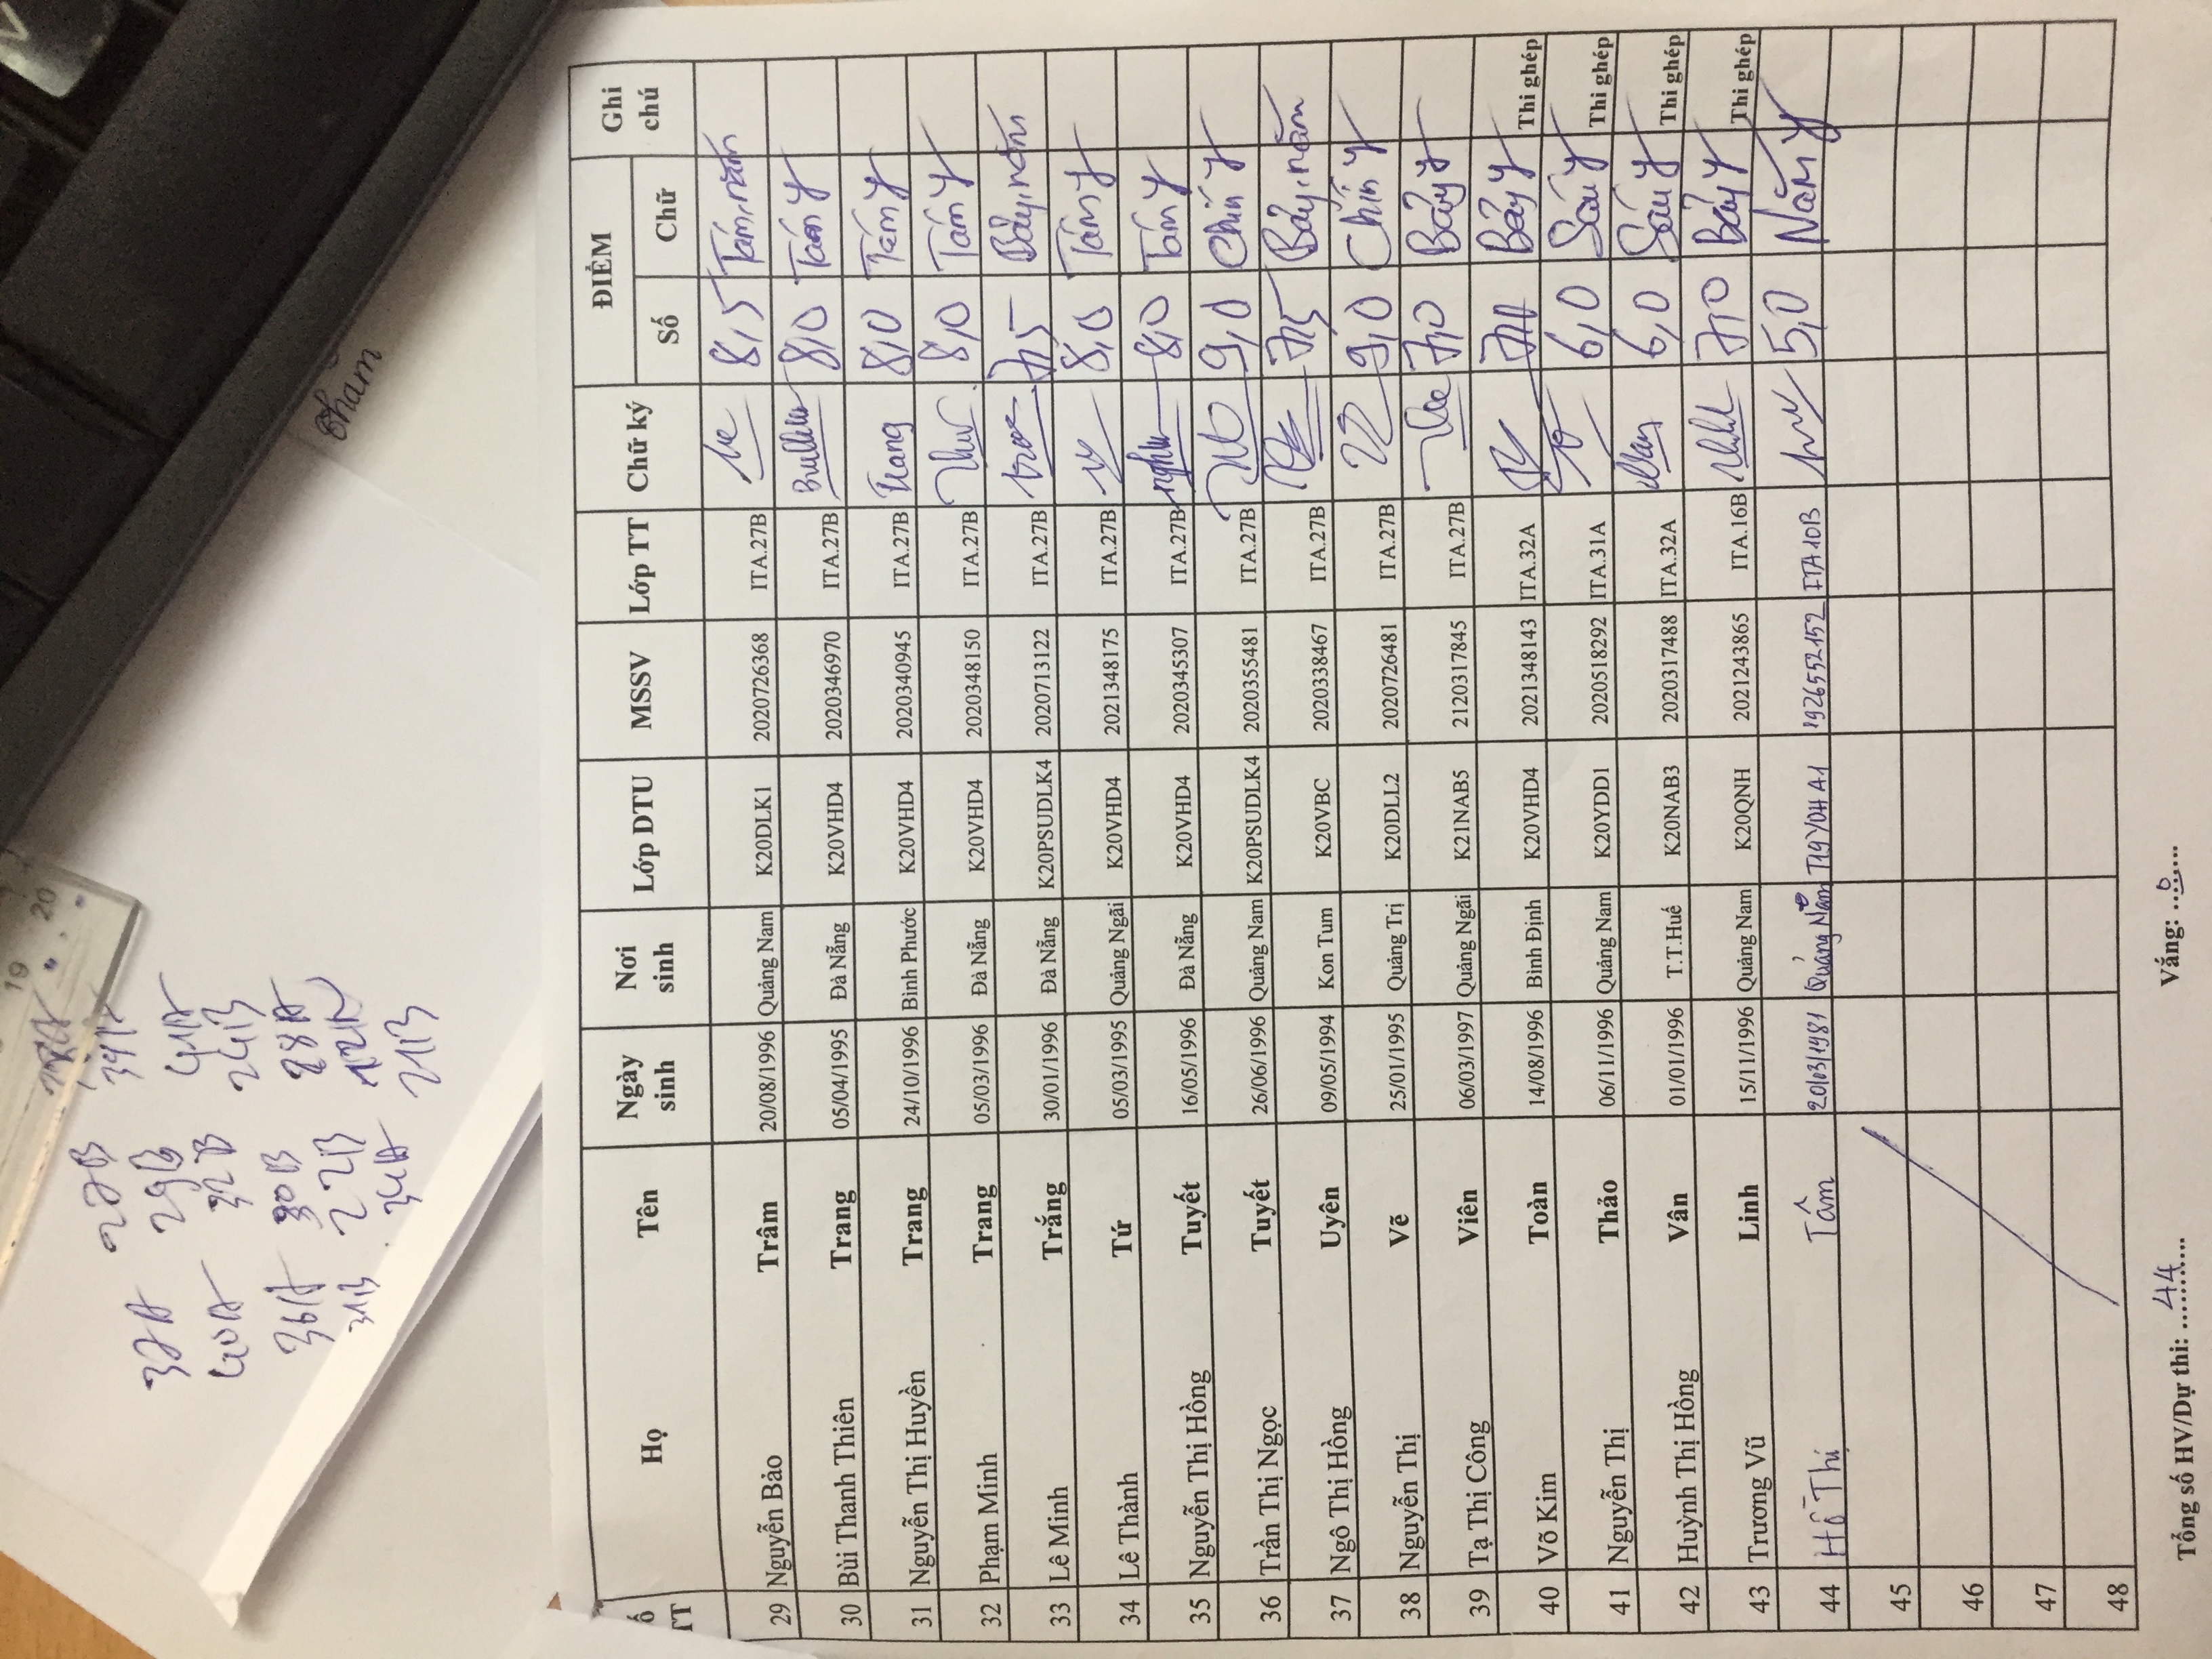 Số TT Họ Tên Ngày sinh Nơi sinh Lớp DTU MSSV Lớp TT Chữ ký ĐIỂM Ghi chú
Số Chữ
29 Nguyễn Bảo Trâm 20/08/1996 Quảng Nam K20DLK1 2020726368 ITA.27B 8,5 Tám, năm
30 Bùi Thanh Thiên Trang 05/04/1995 Đà Nẵng K20VHD4 2020346970 ITA.27B 8,0 Tám y
31 Nguyễn Thị Huyền Trang 24/10/1996 Bình Phước K20VHD4 2020340945 ITA.27B Trang 8,0 Tám y
32 Phạm Minh Trang 05/03/1996 Đà Nẵng K20VHD4 2020348150 ITA.27B 8,0 Tám y
33 Lê Minh Trắng 30/01/1996 Đà Nẵng K20PSUDLK4 2020713122 ITA.27B 7,5 Bảy, năm
34 Lê Thành Tứ 05/03/1995 Quảng Ngãi K20VHD4 2021348175 ITA.27B 8,0 Tám y
35 Nguyễn Thị Hồng Tuyết 16/05/1996 Đà Nẵng K20VHD4 2020345307 ITA.27B 8,0 Tám y
36 Trần Thị Ngọc Tuyết 26/06/1996 Quảng Nam K20PSUDLK4 2020355481 ITA.27B 9,0 Chín y
37 Ngô Thị Hồng Uyên 09/05/1994 Kon Tum K20VBC 2020338467 ITA.27B 7,5 Bảy, năm
38 Nguyễn Thị Vẽ 25/01/1995 Quảng Trị K20DLL2 2020726481 ITA.27B 9,0 Chín y
39 Tạ Thị Công Viên 06/03/1997 Quảng Ngãi K21NAB5 2120317845 ITA.27B 7,0 Bảy y
40 Võ Kim Toàn 14/08/1996 Bình Định K20VHD4 2021348143 ITA.32A 7,0 Bảy y Thi ghép
41 Nguyễn Thị Thảo 06/11/1996 Quảng Nam K20YDD1 2020518292 ITA.31A 6,0 Sáu y Thi ghép
42 Huỳnh Thị Hồng Vân 01/01/1996 T.T.Huế K20NAB3 2020317488 ITA.32A 6,0 Sáu y Thi ghép
43 Trương Vũ Linh 15/11/1996 Quảng Nam K20QNH 2021243865 ITA.16B 7,0 Bảy y Thi ghép
44 Hồ Thị Tâm 20/03/1981 Quảng Nam T19YDHA1 1926552152 ITA10B 5,0 Năm y
45
46
47
48
Tổng số HV/Dự thi: ...44... Vắng: ...0...
37A 27B
40A 29B 39A
36A 32B 41A
31B 30B 24B
22B 28A
34A 12A
21B
19 20